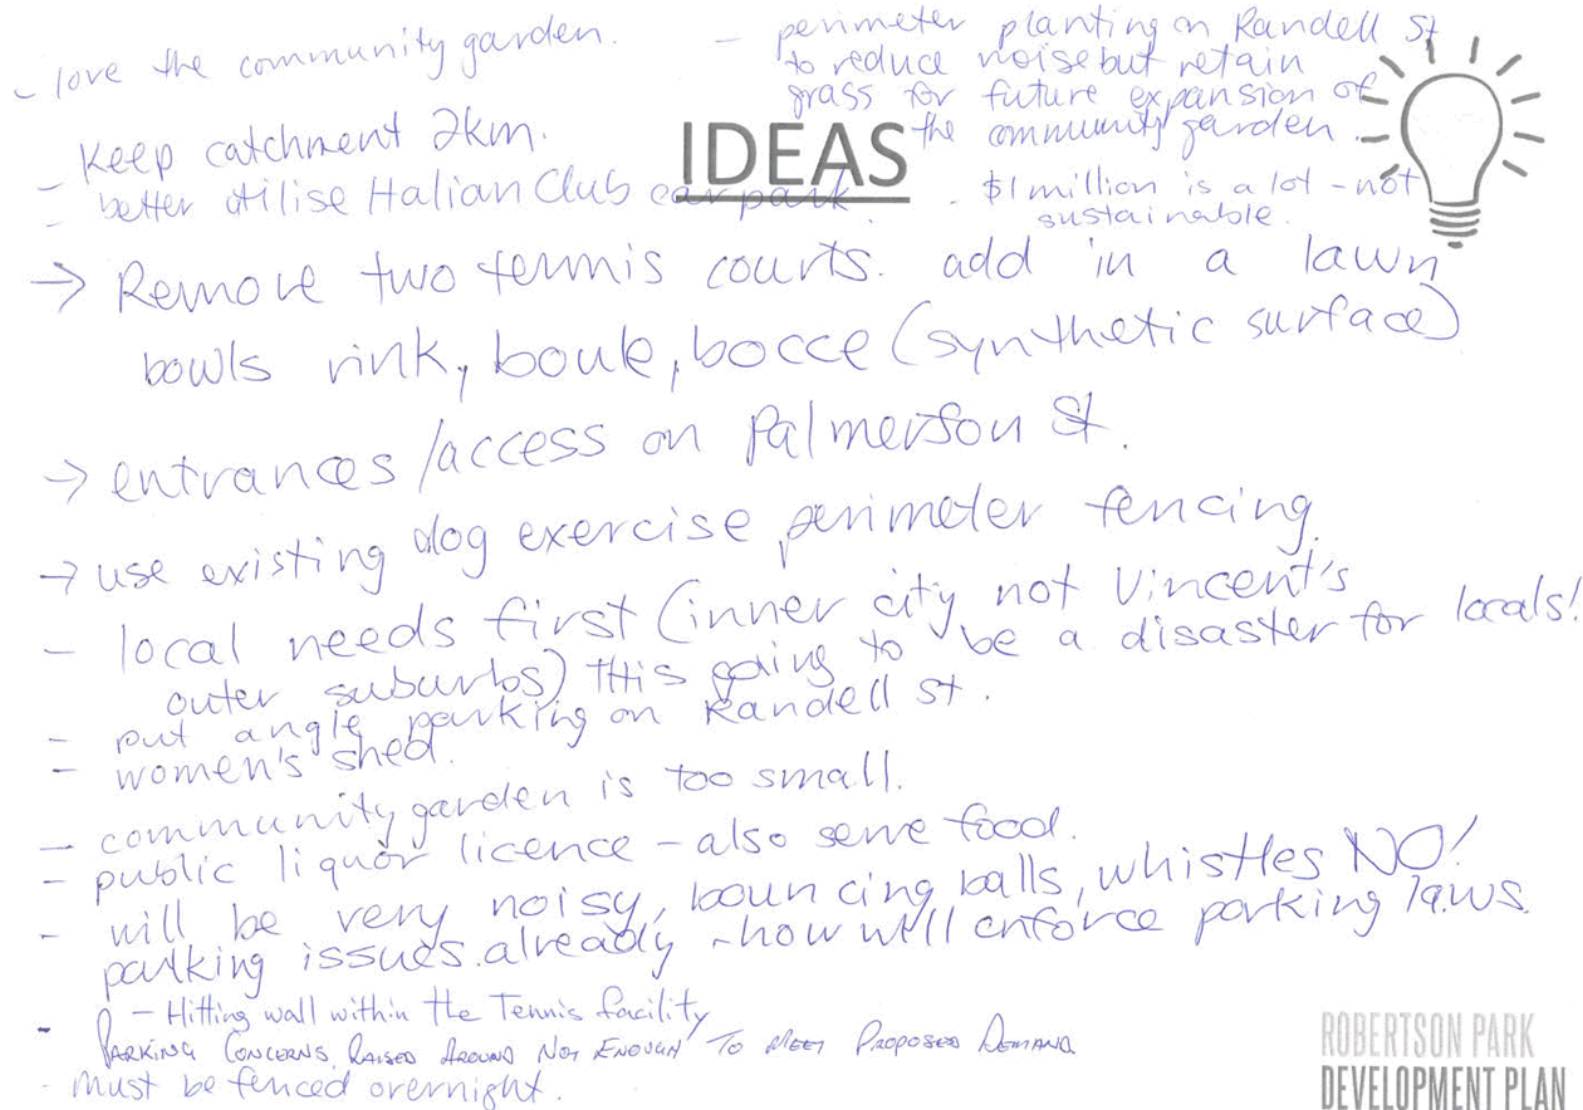 - love the community garden.
- perimeter planting on Randell St
to reduce noise but retain
grass for future expansion of
the community garden.
IDEAS
- Keep catchment 2km.
- better utilise Italian Club car park.
- $1 million is a lot - not
sustainable.
→ Remove two tennis courts. add in a lawn
bowls rink, boule, bocce (synthetic surface)
→ entrances/access on Palmerson St.
→ use existing dog exercise perimeter fencing.
- local needs first (inner city not Vincent's
outer suburbs) THis going to be a disaster for locals!
- put angle parking on Randell St.
- women's shed.
- community garden is too small.
- public liquor licence - also serve food.
- will be very noisy, bouncing balls, whistles NO!
parking issues already - how will enforce parking laws.
- Hitting wall within the Tennis facility
- PARKING CONCERNS RAISED AROUND NOT ENOUGH TO MEET PROPOSED DEMAND.
- must be fenced overnight.
ROBERTSON PARK
DEVELOPMENT PLAN